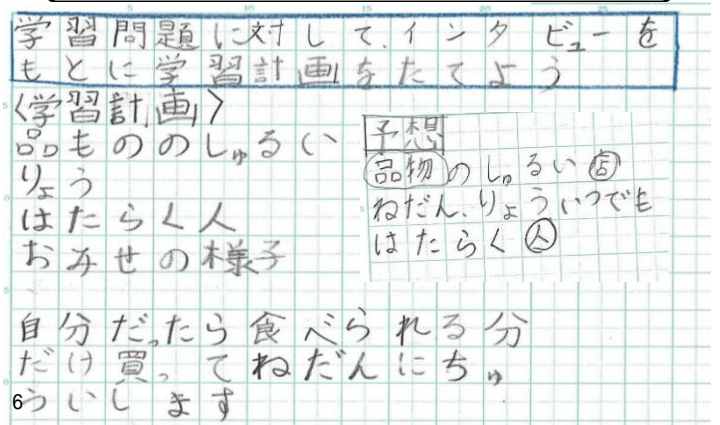 学習問題に対して、インタビューを
もとに学習計画をたてよう
〈学習計画〉
品もののしゅるい
りょう
はたらく人
おみせの様子
予想
品物のしゅるい店
ねだん、りょういつでも
はたらく人
自分だったら食べられる分
だけ買ってねだんにちゅ
ういします
6